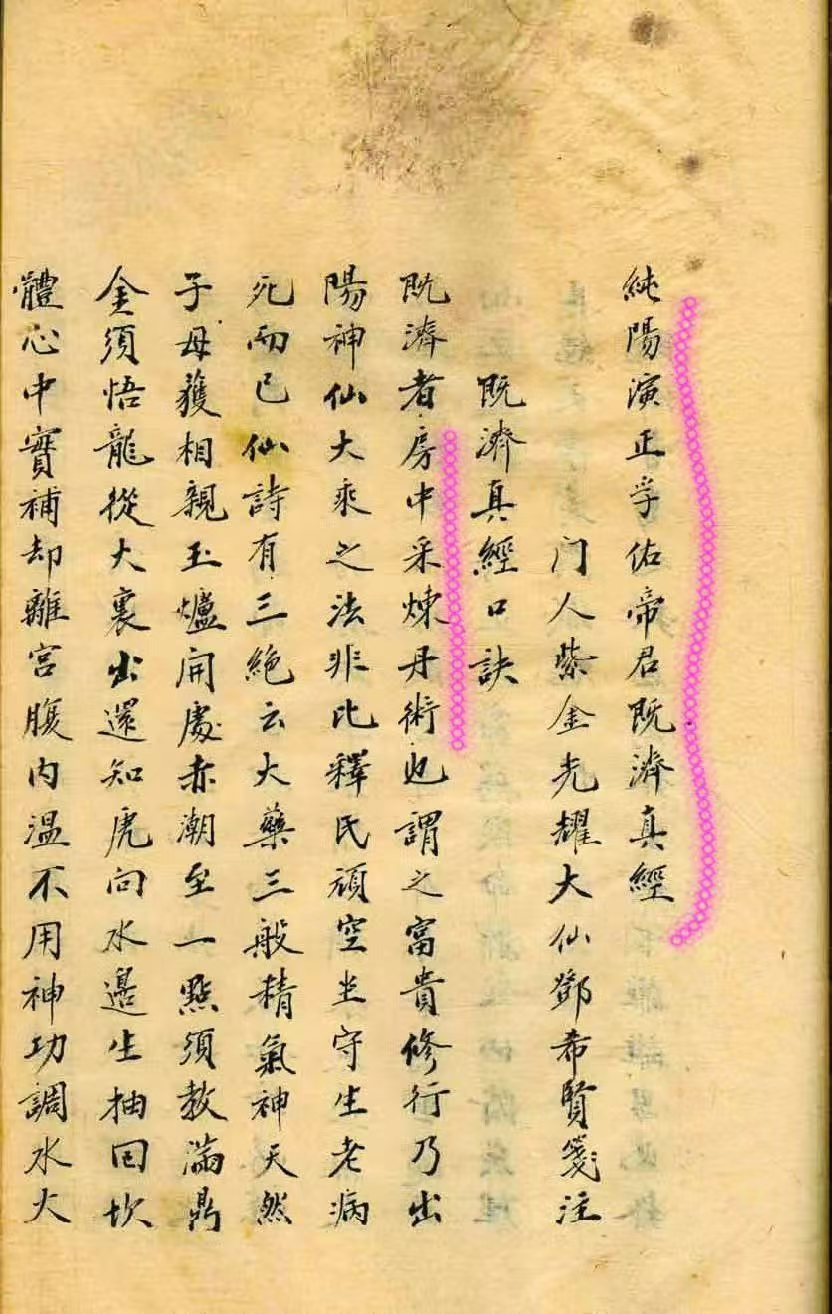 純陽演正孚佑帝君既濟真經
门人紫金光耀大仙鄧希賢箋注
既濟真經口訣
既濟者房中采煉丹術也謂之富貴修行乃出
陽神仙大乘之法非比釋氏頑空坐守生老病
死而已仙詩有三絕云大藥三般精氣神天然
子母獲相親玉爐開處赤潮至一點須教滿鼎
金須悟龍從火裏出還知虎向水邊生抽回坎
體心中實補却離宮腹内温不用神功調水火